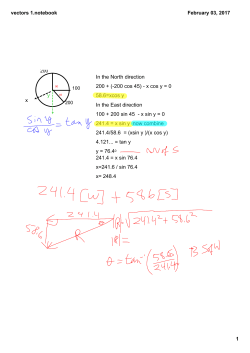 vectors 1.notebook
February 03, 2017
200
100
x
200
In the North direction
200 + (-200 cos 45) - x cos y = 0
58.6=xcos y
In the East direction
100 + 200 sin 45 - x sin y = 0
241.4 = x sin y now combine
241.4/58.6 = (xsin y )/(x cos y)
4.121... = tan y
y = 76.4
241.4 = x sin 76.4
x=241.6 / sin 76.4
x= 248.4
sin y / cos y = tan y
W of S
241.4 [W] + 58.6 [S]
241.4
58.6
R
|R| = √241.4² + 58.6²
|R| =
θ = tan⁻¹ (58.6/241.4)
1